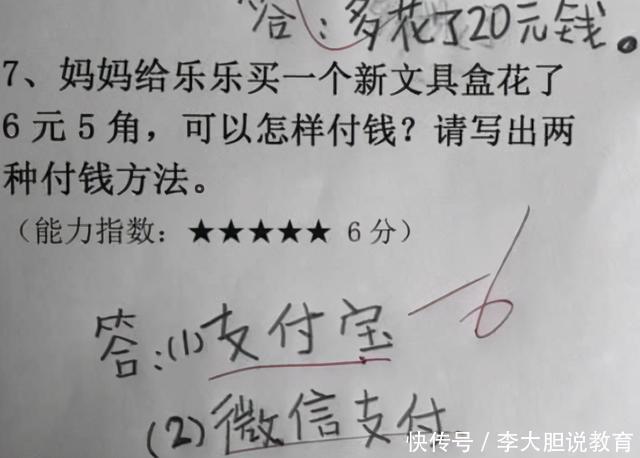 答：多花了20元钱。
7、妈妈给乐乐买一个新文具盒花了
6元5角，可以怎样付钱？请写出两
种付钱方法。
（能力指数：★★★★★ 6分）
答：(1)支付宝 -6
(2)微信支付
快传号／李大胆说教育